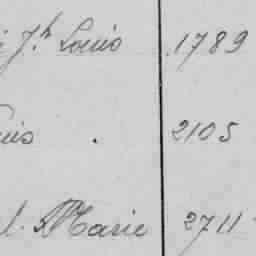 Jh Louis 1789
uis . 2105
l. Marie 2711